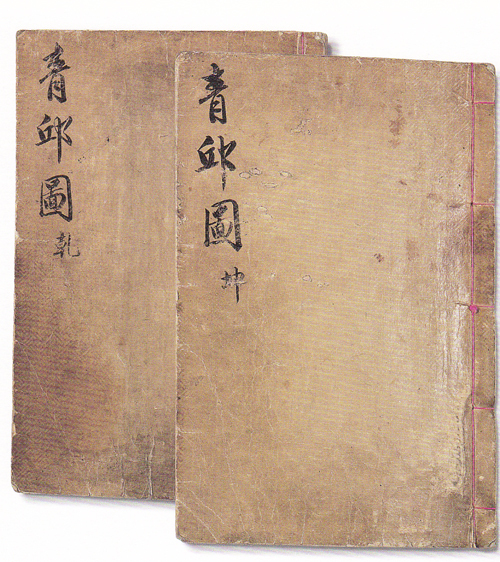 青邱圖 乾
青邱圖 坤